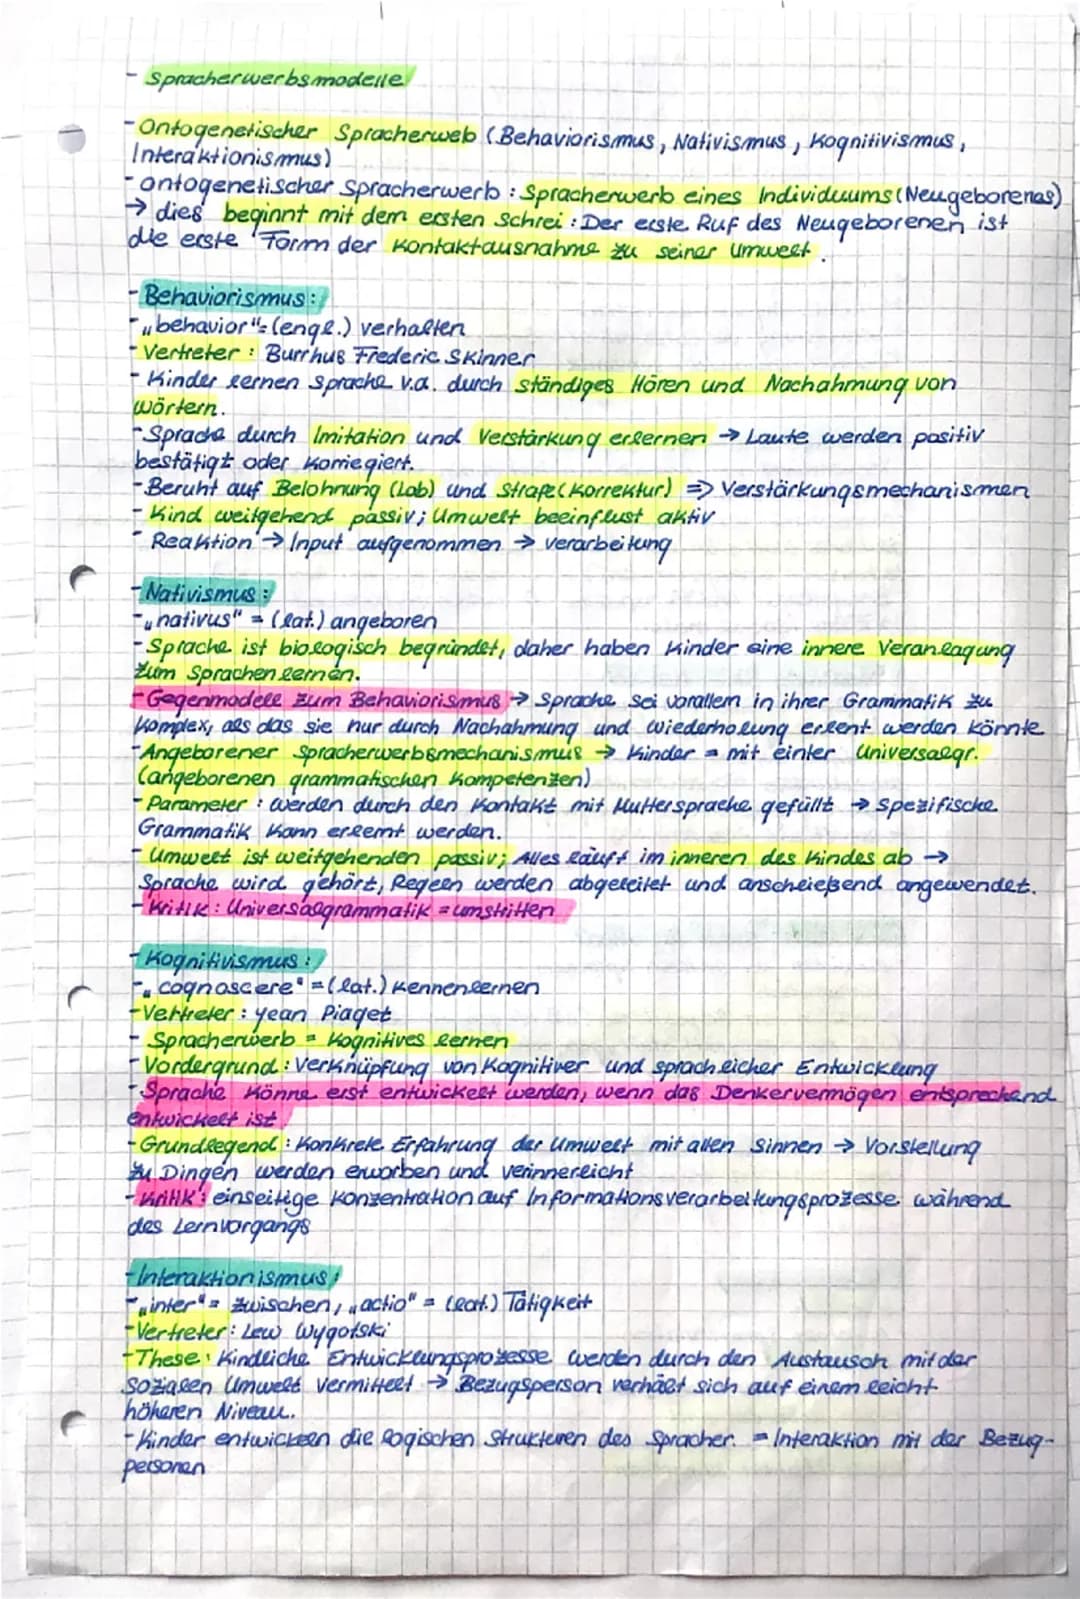 - Spracherwerbsmodelle
- Ontogenetischer Spracherweb (Behaviorismus, Nativismus, Kognitivismus,
Interaktionismus)
- ontogenetischer Spracherwerb : Spracherwerb eines Individuums (Neugeborenes)
→ dies beginnt mit dem ersten Schrei : Der erste Ruf des Neugeborenen ist
die erste Form der Kontaktausnahme zu seiner Umwelt.
- Behaviorismus :
- „behavior" = (engl.) verhalten
- Vertreter : Burrhus Frederic Skinner
- Kinder lernen Sprache v.a. durch ständiges Hören und Nachahmung von
Wörtern.
- Sprache durch Imitation und Verstärkung erlernen → Laute werden positiv
bestätigt oder korriegiert.
- Beruht auf Belohnung (Lob) und Strafe (Korrektur) => Verstärkungsmechanismen
- Kind weitgehend passiv; Umwelt beeinflust aktiv
- Reaktion → Input aufgenommen → verarbeitung
- Nativismus :
- „nativus" = (lat.) angeboren
- Sprache ist biologisch begründet, daher haben Kinder eine innere Veranlagung
zum Sprachen lernen.
- Gegenmodell zum Behaviorismus → Sprache sei vorallem in ihrer Grammatik zu
komplex, als das sie nur durch Nachahmung und Wiederholung erlent werden könnte
- Angeborener Spracherwerbsmechanismus → Kinder = mit einter Universalgr.
(angeborenen grammatischen Kompetenzen)
- Parameter : werden durch den Kontakt mit Muttersprache gefüllt → Spezifische
Grammatik kann erlernt werden.
- Umwelt ist weitgehenden passiv; Alles läuft im inneren des Kindes ab →
Sprache wird gehört, Regeln werden abgeleitet und anschließend angewendet.
- Kritik : Universalgrammatik = umstritten
- Kognitivismus :
- „cognoscere" = (lat.) kennenlernen
- Vertreter : yean Piaget
- Spracherwerb = Kognitives lernen
- Vordergrund : Verknüpfung von Kognitiver und sprachlicher Entwicklung
- Sprache könne erst entwickelt werden, wenn das Denkervermögen entsprechend
entwickelt ist
- Grundlegend : Konkrete Erfahrung der Umwelt mit allen Sinnen → Vorstellung
zu Dingen werden erworben und verinnerlicht
- Kritik : einseitige Konzentration auf Informationsverarbeitungsprozesse während
des Lernvorgangs
- Interaktionismus :
- „inter" = zwischen, „actio" = (lat.) Tätigkeit
- Vertreter : Lew Wygotski
- These : Kindliche Entwicklungsprozesse werden durch den Austausch mit der
Sozialen Umwelt Vermittelt → Bezugsperson verhält sich auf einem leicht
höheren Niveau.
- Kinder entwickeln die logischen Strukturen des Spracher. = Interaktion mit der Bezug-
personen